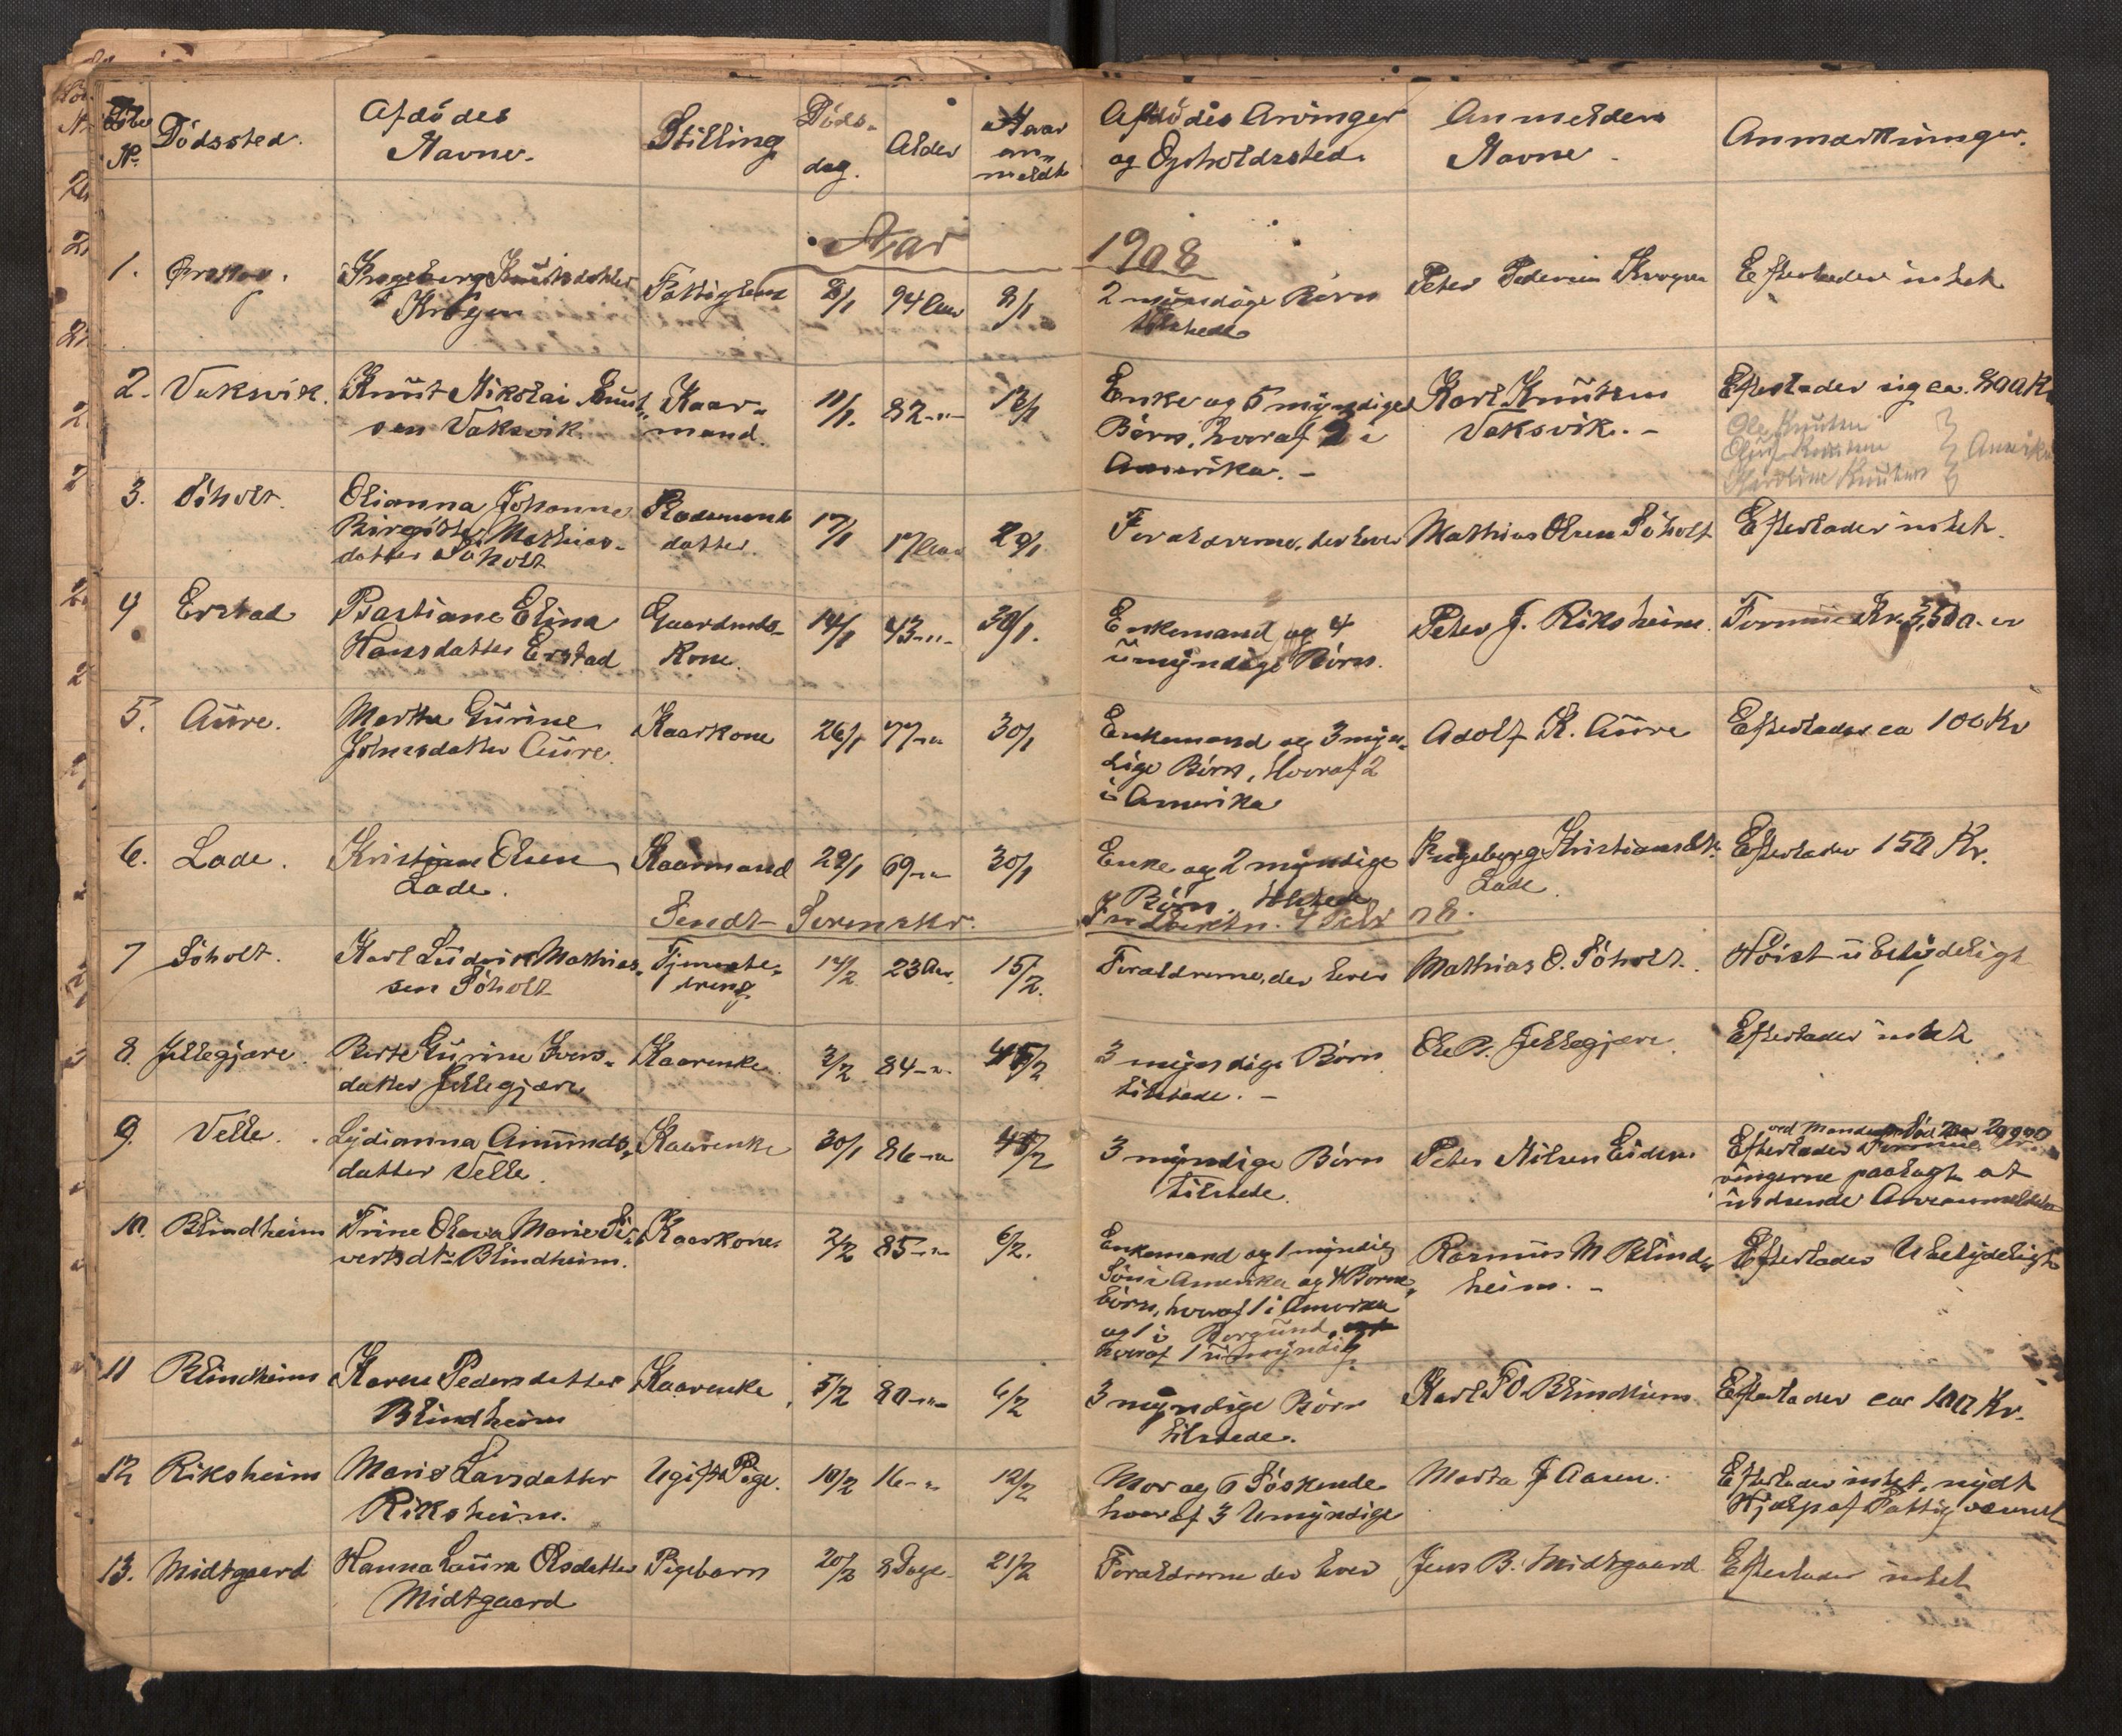 Löbe N: Dödssted. Afdödes Navne. Stilling Döds-dag. Alder Naar anmeldt Afdödes Arvinger og Opholdssted. Anmelders Navne. Anmærkninger.
Aar 1908
1. Knutsdatter Fattiglem 8/1 94 Aar 9/1 2 myndige Börn tilstede Peter Pedersen Efterlader intet
2. Vaksvik. Knut Nikolai Knut-
sen Vaksvik Kaar-
mand. 11/1. 82 -"- 13/1 Enke og 5 myndige
Börn, hvoraf 3 i
Amerika. - Karl Knutsen
Vaksvik. - Efterlader sig ca. 200 Kr
Ole Knutsen
Knutsen } Amerika
Knutsen
3. Söholt. Olianna Johanne
Birgitte Mathias-
datter Söholt datter. 17/1 17 Aar 29/1 Forældrerne, der lever Mathias Olsen Söholt Efterlader intet.
4 Erstad Bastiane Elina
Hansdatter Erstad Gaardmds-
Kone. 14/1 43 -"- 30/1. Enkemand og 4
umyndige Börn. Peter J. Riksheim. Formue Kr. 3,500.-
5. Aure. Marthe Gurine
Johnsdatter Aure. Kaarkone 26/1 77 -"- 30/1 Enkemand og 3 myn-
dige Börn, hvoraf 2
i Amerika Adolf K. Aure Efterlader ca 100 Kr
6. Lade. Kristian Olsen
Lade. Kaarmand 29/1 69 -"- 30/1 Enke og 2 myndige
Börn, tilstede Ingeborg Kristiansdtr.
Lade. Efterlader 150 Kr.
Sendt Sorenskr. Indberetn. 4 Febr 08.
7 Söholt. Karl Ludvik Mathias-
sen Söholt Tjeneste-
dreng 14/2 23 Aar 15/2. Forældrerne, der lever Mathias O. Söholt. Höist ubetydeligt
8. Jellegjære. Berte Gurine Ivers-
datter Jellegjære Kaarenke 3/2 84 -"- 3 myndige Börn
tilstede. - Ole B. Jellegjære Efterlader intet
9. Velle. Lydianna Amunds-
datter Velle. Kaarenke 30/1 86 -"- 3 myndige Börn
tilstede. Peter Nilsen Eidem ved Mandens Död
Efterlader Formue
vingerne paalagt at
indsende Arveanmeldelse
10. Blindheim Trine Olava Marie Si-
vertsdtr Blindheim. Kaarkone. 2/2 85 -"- 6/2. Enkemand og 1 myndig
Sön i Amerika og 4 Börne-
börn, hvoraf 1 i Amerika
og 1 i Borgund,
hvoraf 1 umyndig Rasmus M Blind-
heim. - Efterlader Ubetydeligt
11 Blindheim Karen Pedersdatter
Blindheim Kaarenke 5/2 80 -"- 6/2 3 myndige Börn
tilstede. Karl P O Blindheim Efterlader ca 100 Kr.
12 Riksheim Marie Larsdatter
Riksheim. Ugift Pige. 10/2 16 -"- 12/2 Mor og 6 Söskende
hvoraf 3 Umyndige Marta J Aasen. Efterlader intet, nydt
Hjælp af Fattigvæsenet
13. Midtgaard Hanna Laura Olsdatter
Midtgaard Pigebarn 20/2 8 Dage 21/2 Forældrerne der lever Jens B. Midtgaard Efterlader intet